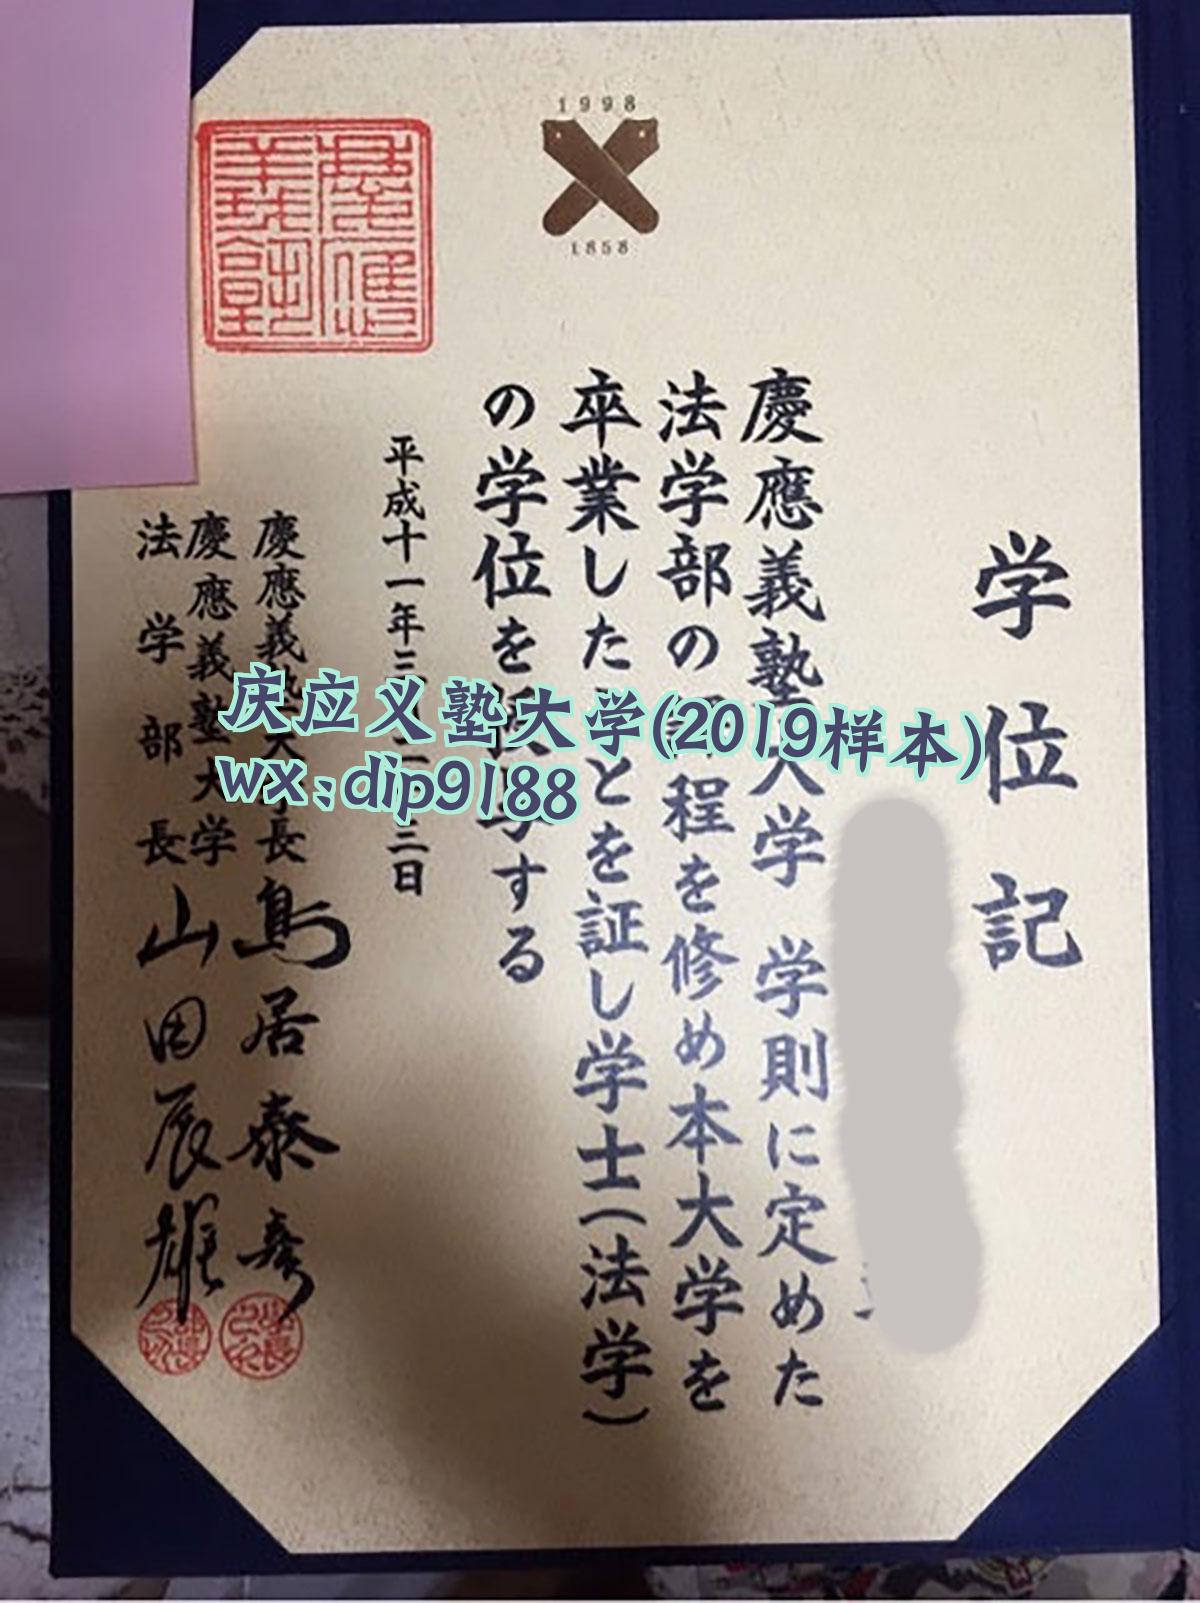 1998
1858
学位記
慶應義塾大学 学則に定めた
法学部の 程を修め本大学を
卒業した とを証し学士(法学)
の学位を する
平成十一年三 三日
慶應義 長 鳥居泰彦
慶應義塾大学
法学部長 山田辰雄
庆应义塾大学(2019样本)
wx:dip9188